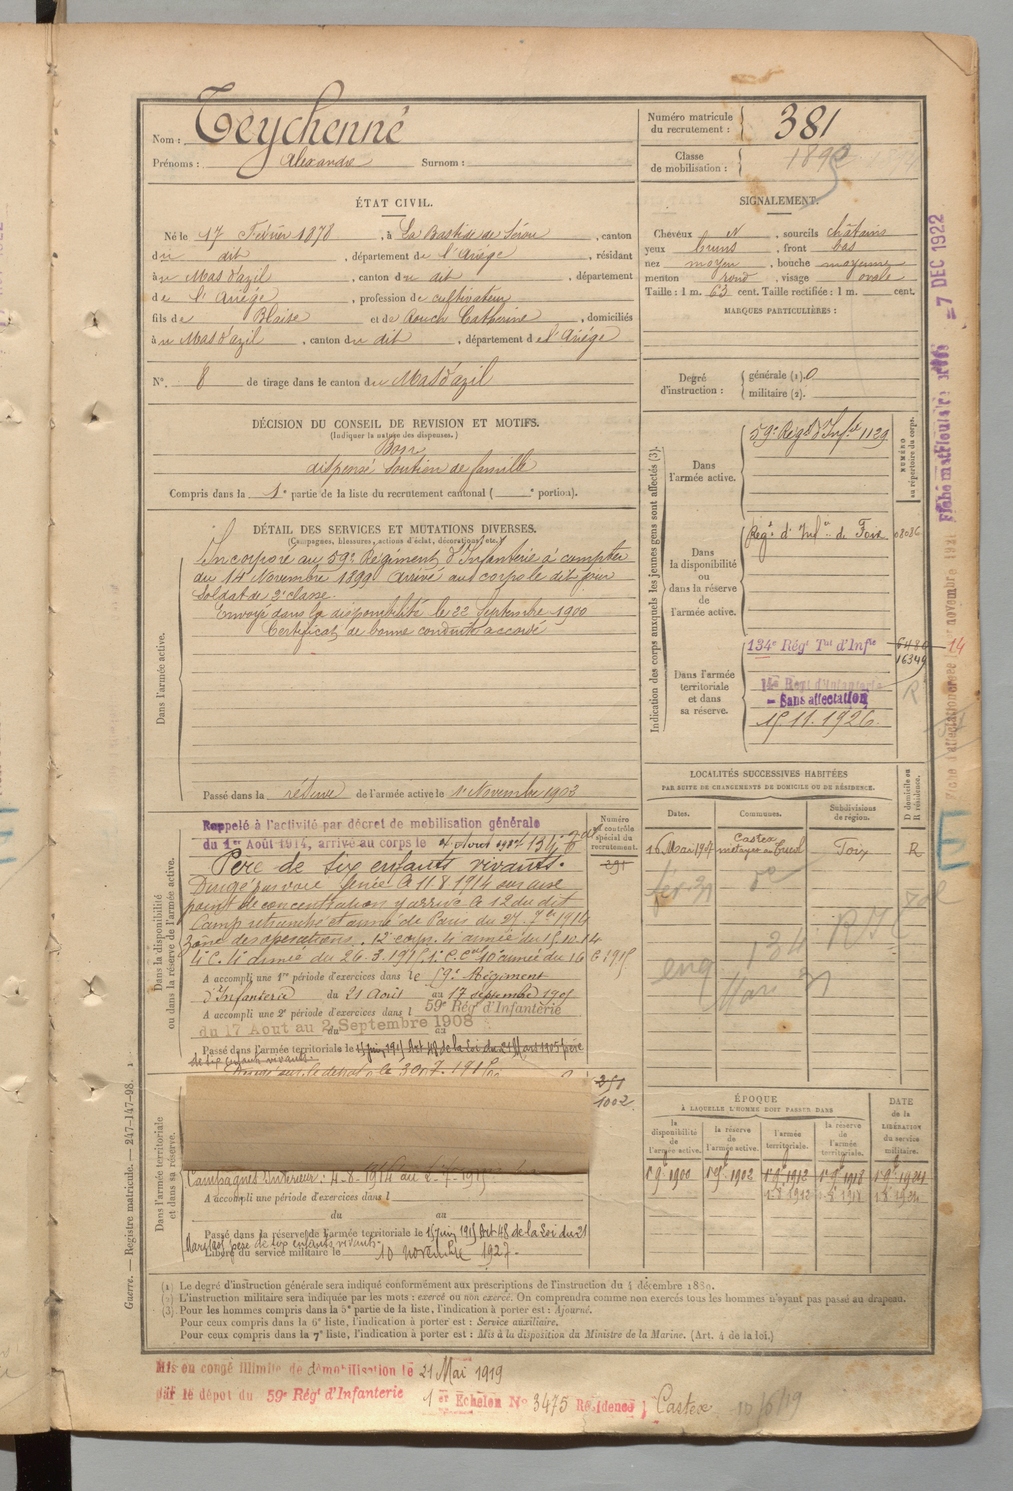 Nom : Teychenné
Prénoms : Alexandre Surnom :
Numéro matricule du recrutement : 381
Classe de mobilisation : 1892
ÉTAT CIVIL.
Né le 17 Février 1878, à La Bastide de Sérou, canton
du dit, département de l'Ariège, résidant
à u Mas d'azil, canton du dit, département
de l'Ariége, profession de cultivateur
fils de Blaise et de Rouch Catherine, domiciliés
à u Mas d'azil, canton du dit, département de l'Ariége
N° 8 de tirage dans le canton du Mas d'azil
SIGNALEMENT.
Cheveux N, sourcils châtains
yeux bruns, front bas
nez moyen, bouche moyenne
menton rond, visage ovale
Taille : 1 m. 63 cent. Taille rectifiée : 1 m. cent.
MARQUES PARTICULIÈRES :
Degré d'instruction : générale (1). 0
militaire (2).
DÉCISION DU CONSEIL DE REVISION ET MOTIFS.
(Indiquer la nature des dispenses.)
Bon
dispensé Soutien de famille
Compris dans la 1e partie de la liste du recrutement cantonal ( e portion).
DÉTAIL DES SERVICES ET MUTATIONS DIVERSES.
(Campagnes, blessures, actions d'éclat, décorations, etc.)
Dans l'armée active.
Incorporé au 59e Régiment d'Infanterie à compter
du 14 Novembre 1899 arrivé au corps le dit jour
Soldat de 2e classe.
Envoyé dans la disponibilité le 22 Septembre 1900
Certificat de bonne conduite accordé
Passé dans la réserve de l'armée active le 1er Novembre 1902
Indication des corps auxquels les jeunes gens sont affectés (3).
NUMÉRO au répertoire du corps.
Dans l'armée active.
59e Régt d'Infie 1129
Dans la disponibilité ou dans la réserve de l'armée active.
Régt d'Infie de Foix 08036
Dans l'armée territoriale et dans sa réserve.
134e Régt Tal d'Infie
16349
14e Regt d'Infanterie
- Sans affectation
15.11.1926
LOCALITÉS SUCCESSIVES HABITÉES
PAR SUITE DE CHANGEMENTS DE DOMICILE OU DE RÉSIDENCE.
Dates. Communes. Subdivisions de région. D domicile ou R résidence.
16 Mai 1907 Castex Foix R
Dans la disponibilité ou dans la réserve de l'armée active.
Numéro au contrôle spécial du recrutement.
Rappelé à l'activité par décret de mobilisation générale
du 1er Août 1914, arrivé au corps le 4 Aout 1914 134e
Père de six enfants vivants.
Dirigé par voie ferrée le 11 8 1914 sur une
point de concentration y arrive le 12 du dit
Camp retranché et armée de Paris du 27. 7bre 1914
zône des opérations. 12e corps 4e armée du 15.10.14
A accompli une 1re période d'exercices dans le 59e Régiment
d'Infanterie du 21 Août au 17 septembre 1905
A accompli une 2e période d'exercices dans l 59e Rég d'Infanterie
du 17 Aout au 2 Septembre 1908
Passé dans l'armée territoriale le 15 juin 1915 Art 48 de la loi du 21 Mars 1905 père
de six enfants vivants
1002
Dans l'armée territoriale et dans sa réserve.
Campagnes Intérieur : 4-8-1914 au
A accompli une période d'exercices dans l
du au
Passé dans la réserve de l'armée territoriale le 15 juin 1915 Art 48 de la Loi du 21
Mars 1905 père de six enfants vivants
Libéré du service militaire le 10 novembre 1927.
ÉPOQUE
À LAQUELLE L'HOMME DOIT PASSER DANS
la disponibilité de l'armée active. la réserve de l'armée active. l'armée territoriale. la réserve de l'armée territoriale.
DATE de la LIBÉRATION du service militaire.
(1) Le degré d'instruction générale sera indiqué conformément aux prescriptions de l'instruction du 4 décembre 1889.
(2) L'instruction militaire sera indiquée par les mots : exercé ou non exercé. On comprendra comme non exercés tous les hommes n'ayant pas passé au drapeau.
(3) Pour les hommes compris dans la 5e partie de la liste, l'indication à porter est : Ajourné.
Pour ceux compris dans la 6e liste, l'indication à porter est : Service auxiliaire.
Pour ceux compris dans la 7e liste, l'indication à porter est : Mis à la disposition du Ministre de la Marine. (Art. 4 de la loi.)
Guerre. — Registre matricule. — 247-147-98.
Mis en congé illimité de démobilisation le 21 Mai 1919
par le dépot du 59e Régt d'Infanterie 1er Echelon No 3475 Résidence ; Castex 10/6/19
= 7 DEC 1922